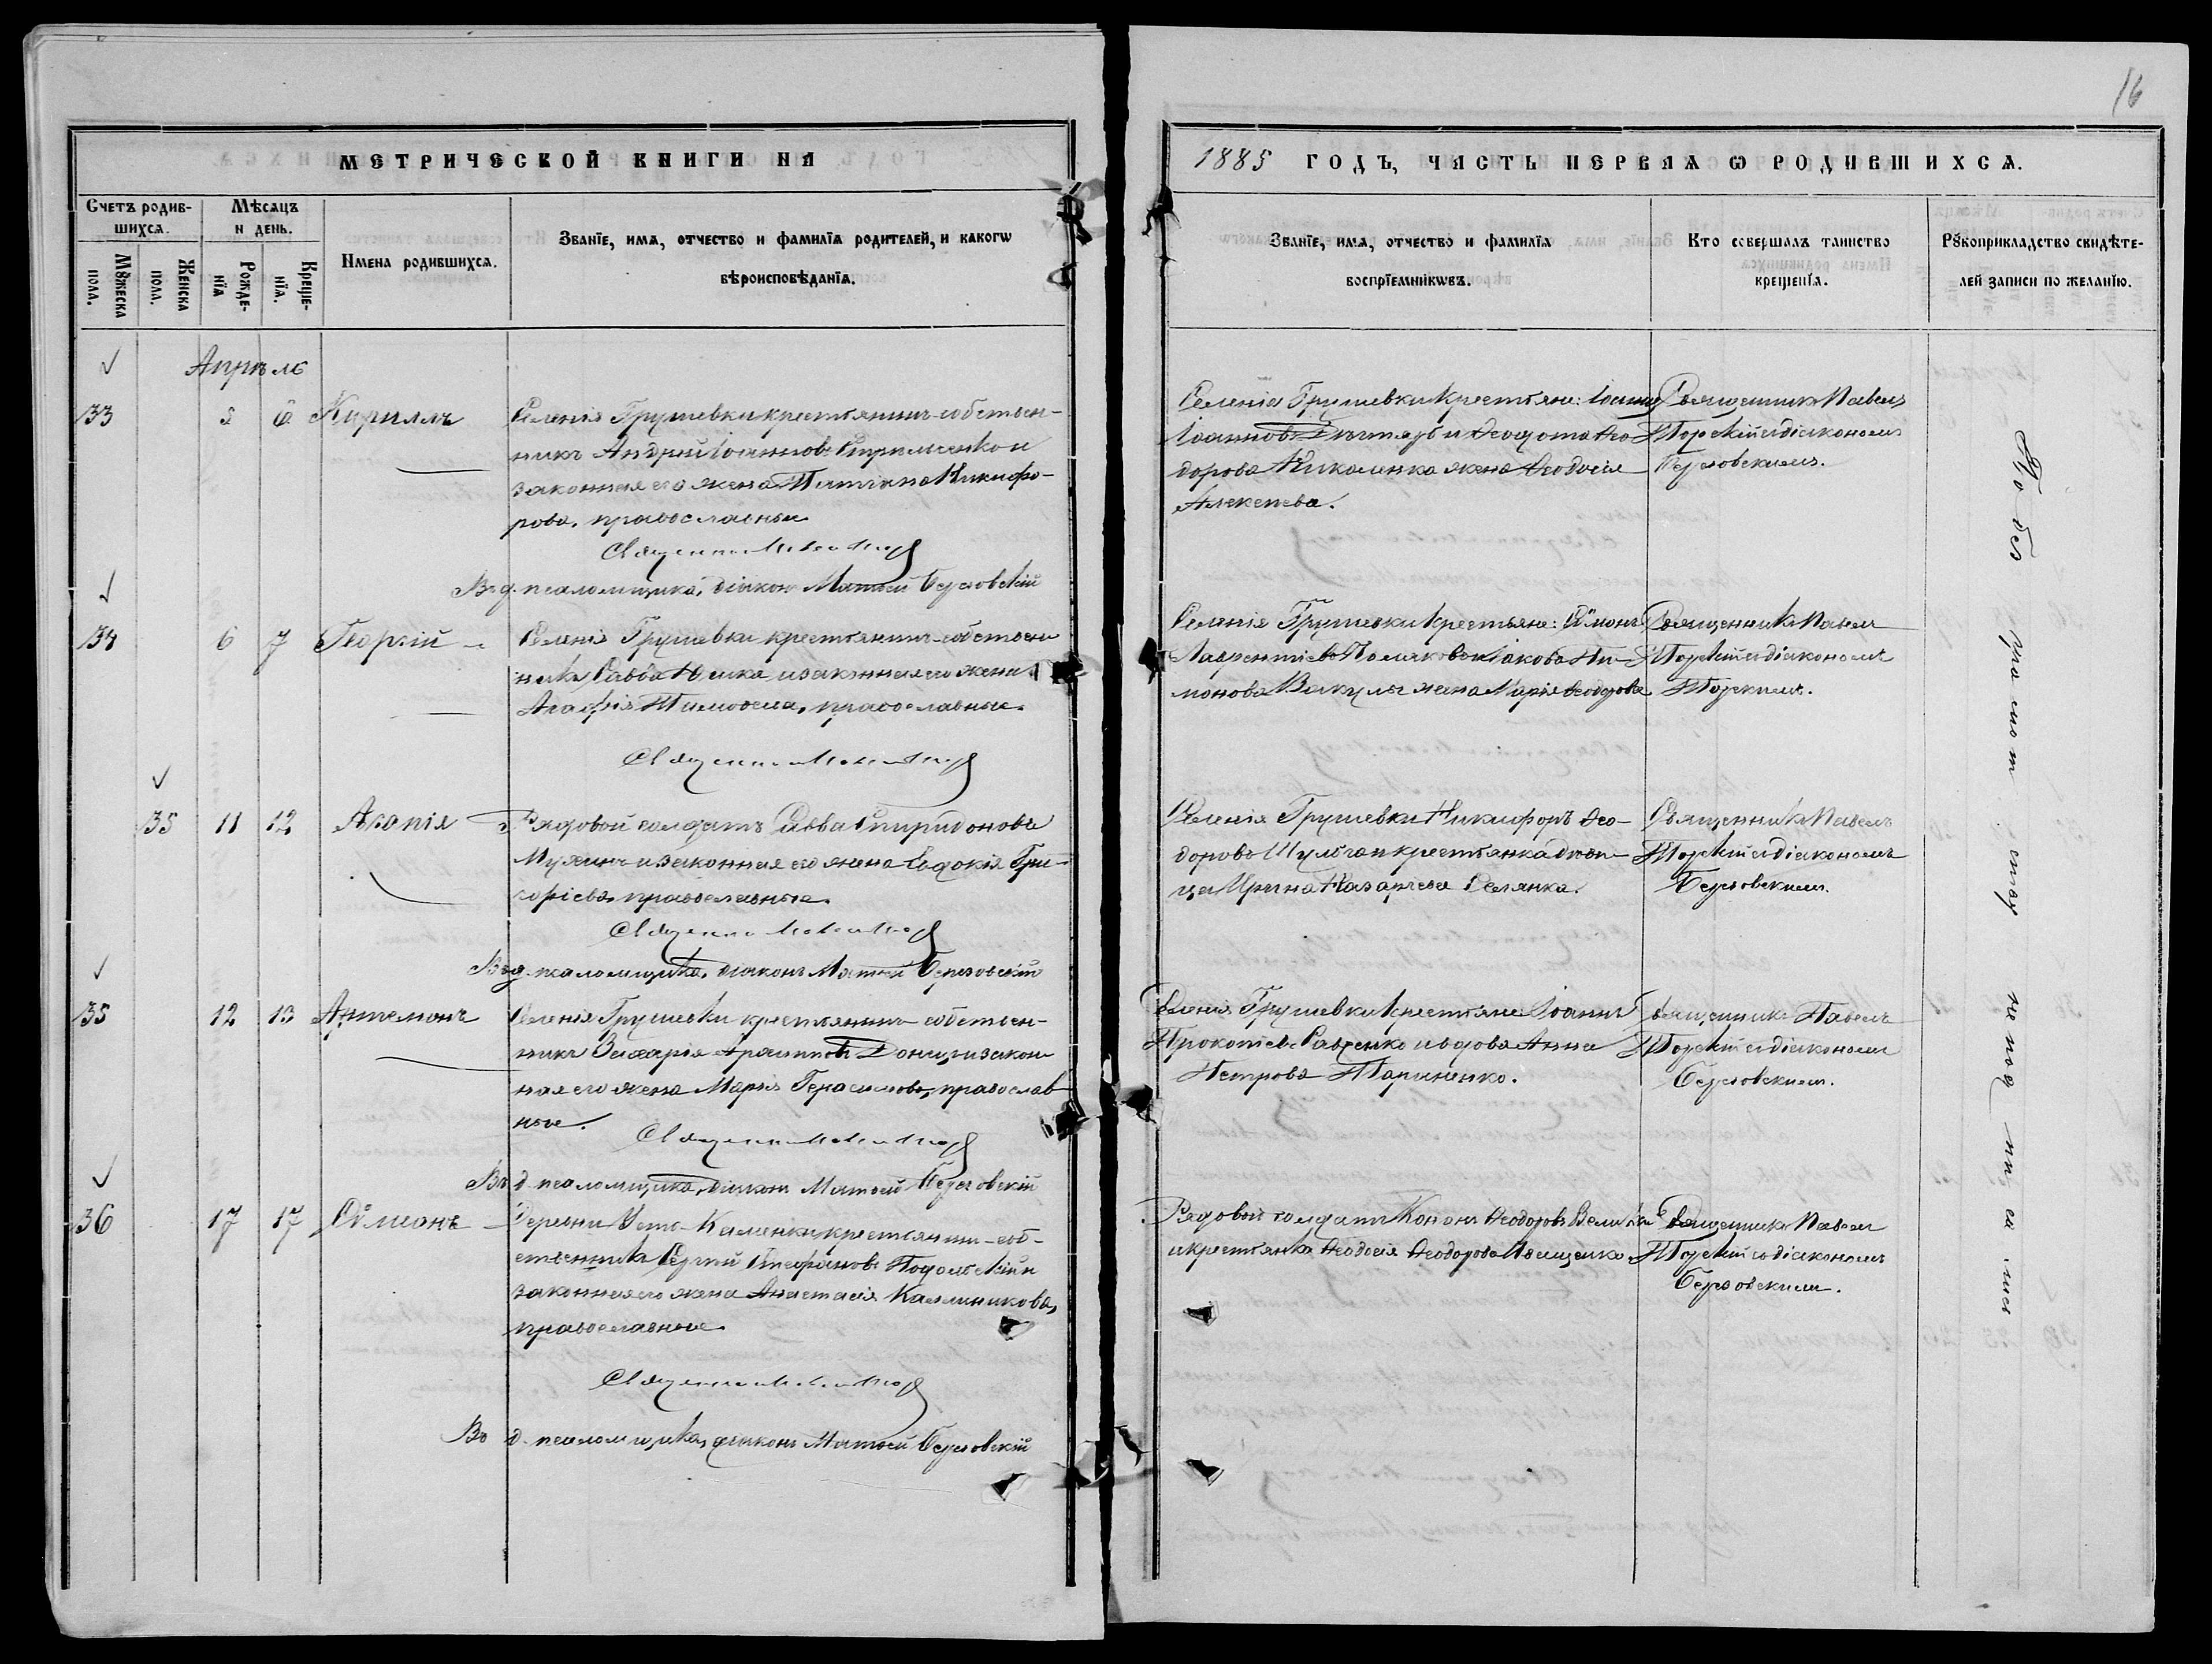 16
МЕТРИЧЕСКОЙ КНИГИ НА
1885 ГОДЪ, ЧАСТЬ ПЕРВАЯ Ѡ РОДИВШИХСЯ.
Счетъ родив-
шихся.
Мѣсяцъ
и день.
Мꙋжеска
пола.
Женска
пола.
Рожде-
нїя
Креще-
нїя.
Имена родившихся.
Званїе, имя, отчество и фамилїа родителей, и какогѡ
вѣроисповѣданїя.
Званїе, имя, отчество и фамилїа
воспрїемникѡвъ.
Кто совершалъ таинство
крещенїя.
Рꙋкоприкладство свидѣте-
лей записи по желанїю.
Апрѣль
33 5 6 Кириллъ
Селенія Грушевки крестьянинъ-собствен-
никъ Андрей Іоанновъ и
законная его жена Татіана Никифо-
рова, православные
Священникъ Павелъ
Въ д. псаломщика, діаконъ Матѳей Березовскій
Селенія Грушевки крестьяне: Іоаннъ
Іоанновъ Дегтярь и Ѳеодота Ѳео-
дорова Николенка жена Ѳеодосія
Алексѣева.
Священникъ Павелъ
Торскій съ діакономъ
Березовскимъ.
34 6 7 Георгій
Селенія Грушевки крестьянинъ-собствен
никъ Савва и законная его жена
Агафія Тимоѳеева, православные.
Священникъ Павелъ
Селенія Грушевки крестьяне: Сѵмонъ
Лаврентіевъ и Іакова Фи-
монова Вакулы жена Марія Ѳеодорова
Священникъ Павелъ
Торскій съ діакономъ
Торскимъ.
35 11 12 Агапія
Рядовой солдатъ Савва Спиридоновъ
Мухинъ и законная его жена Евдокія Гри-
горіева, православные.
Священникъ Павелъ
Въ д. псаломщика, діаконъ Матѳей Березовскій
Селенія Грушевки Никифоръ Ѳео-
доровъ Шульга и крестьянка дѣви-
ца Ирина Назаріева Селянка.
Священникъ Павелъ
Торскій съ діакономъ
Березовскимъ.
35 12 13 Артемонъ
Селенія Грушевки крестьянинъ-собствен-
никъ Захарія Донецъ и закон
ная его жена Марія Герасимова, православ
ные.
Священникъ Павелъ
Въ д. псаломщика, діаконъ Матѳей Березовскій
Селенія Грушевки крестьяне: Іоаннъ
Прокопіевъ Савченко и вдова Анна
Петрова Тариненко.
Священникъ Павелъ
Торскій съ діакономъ
Березовскимъ.
36 17 17 Сѵмеонъ
Деревни Усть-Каменки крестьянинъ-соб-
ственникъ Сергій Стефановъ Подольскій и
законная его жена Анастасія Каллиникова,
православные
Священникъ Павелъ
Въ д. псаломщика, діаконъ Матѳей Березовскій
Рядовой солдатъ Кононъ Ѳеодоровъ
и крестьянка Ѳеодосія Ѳеодорова Иващенко
Священникъ Павелъ
Торскій съ діакономъ
Березовскимъ.
По безграмотству не подписались